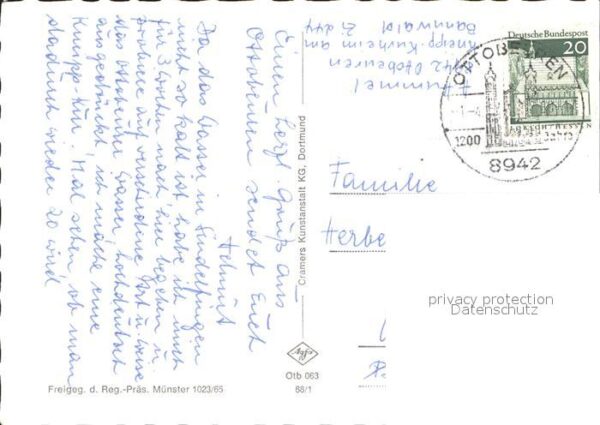 Einen herzl. Gruß aus
Ottobeuren sendet Euch
Helmut
Da das Wasser in Sindelfingen
nicht so hart ist habe ich mich
für 3 Wochen nach hier begeben u.
probiere auf verschiedene Art u. Weise
das Ottobeurer Wasser. Hochdeutsch
ausgedrückt, ich mache eine
Kneipp-Kur! Mal sehen, ob man
dadurch wieder 20 wird
Hummel
8942 Ottobeuren
Kneipp-Kurheim am
Bannwald
Deutsche Bundespost
20
OTTOBEUREN
1200
8942
Familie
Herbe
privacy protection
Datenschutz
Cramers Kunstanstalt KG, Dortmund
Agfa
Otb 063
68/1
Freigeg. d. Reg.-Präs. Münster 1023/66